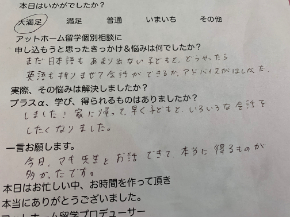 本日はいかがでしたか？
大満足 満足 普通 いまいち その他
アットホーム留学個別相談に
申し込もうと思ったきっかけ＆悩みは何でしたか？
まだ日本語もあまり出ない子どもと、どうやったら
英語も取り入れて会話ができるか、アドバイスがほしくて。
実際、その悩みは解決しましたか？
プラスα、学び、得られるものはありましたか？
しました！家に帰って早く子どもといろいろな会話を
したくなりました。
一言お願いします。
今日、マキ先生とお話できて本当に得るものが
多かったです。
本日はお忙しい中、お時間を作って頂き
本当にありがとうございました。
アットホーム留学プロデューサー